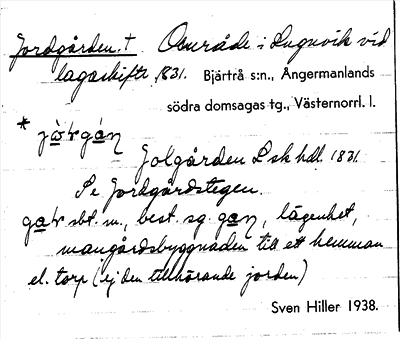 Jordgården. † Område i Lugnvik vid
lagaskifte 1831. Bjärtrå s:n., Ångermanlands
södra domsagas tg., Västernorrl. l.
* jò̱ɽga̱ɳ
Jolgården L sk hdl. 1831.
Se Jordgårdstegen.
ga̱ɽ sbt. m., best. sg. ga̱ɳ, lägenhet,
mangårdsbyggnaden till ett hemman
el. torp (ej den tillhörande jorden)
Sven Hiller 1938.